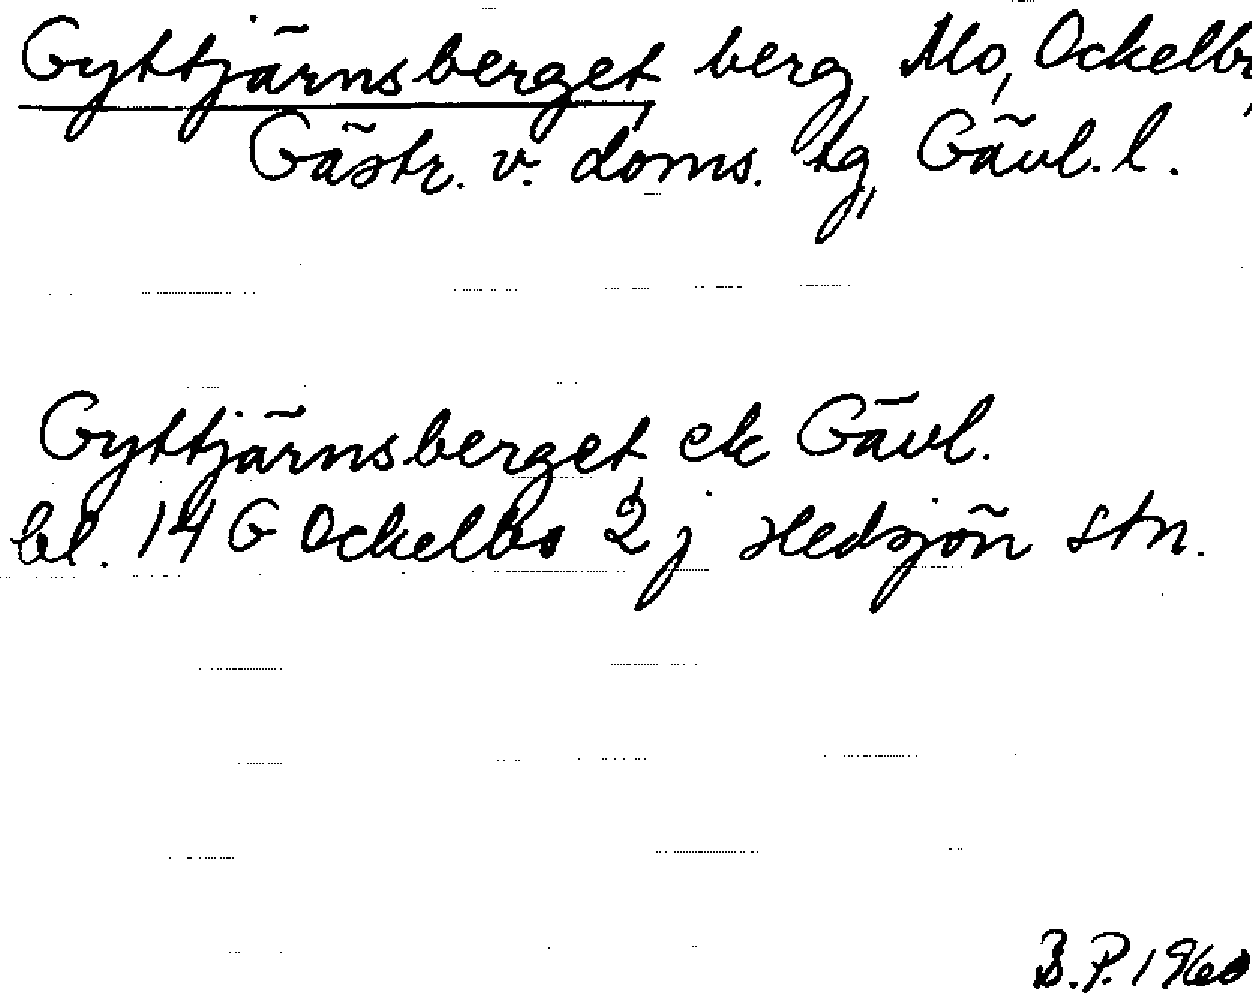 Gyttjärnsberget, berg, Mo, Ockelbo,
Gästr. v. doms. tg, Gävl. l.
Gyttjärnsberget, ek Gävl.
bl. 14 G Ockelbo 2j Hedsjön stn.
B.P. 1960